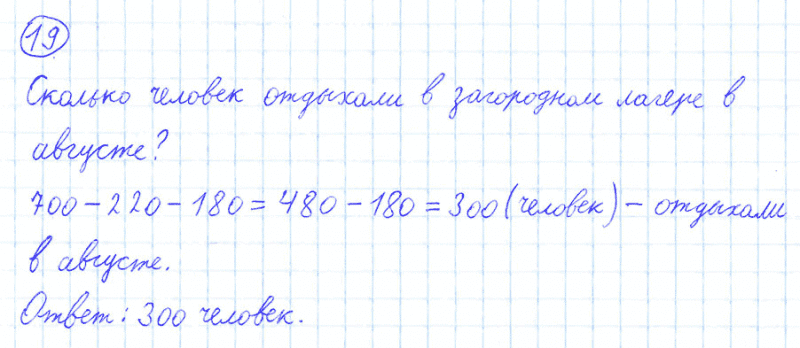 19
Сколько человек отдыхали в загородном лагере в
августе?
700 – 220 – 180 = 480 – 180 = 300 (человек) – отдыхали
в августе.
Ответ: 300 человек.